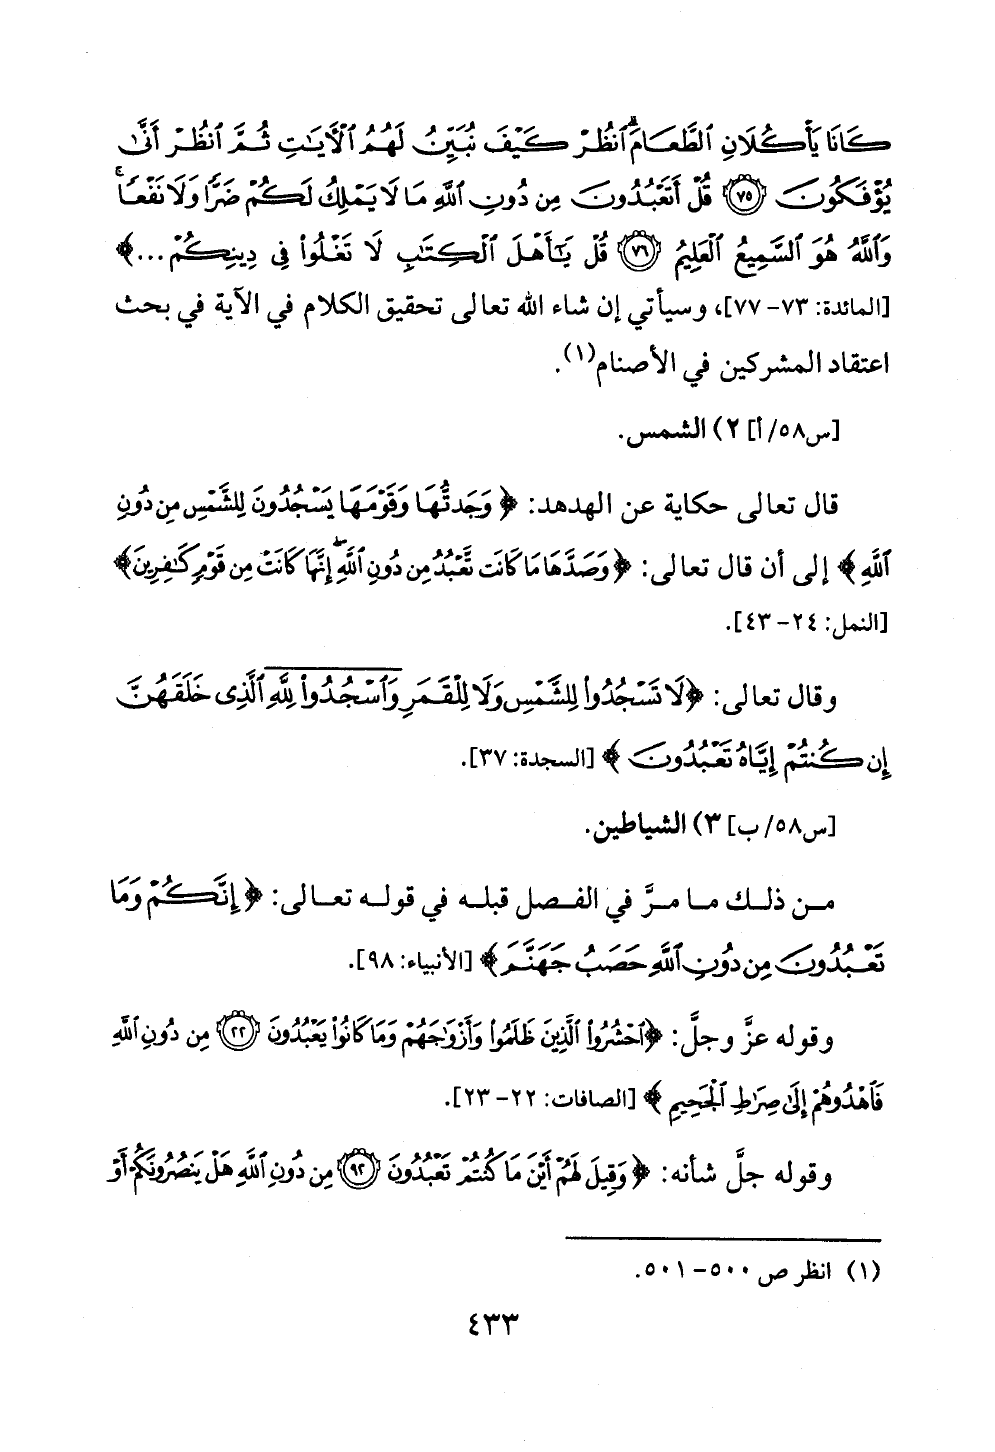 كَانَا يَأْكُلَانِ الطَّعَامَ ۗ انْظُرْ كَيْفَ نُبَيِّنُ لَهُمُ الْآيَاتِ ثُمَّ انْظُرْ أَنَّىٰ
يُؤْفَكُونَ ﴿٧٥﴾ قُلْ أَتَعْبُدُونَ مِن دُونِ اللَّهِ مَا لَا يَمْلِكُ لَكُمْ ضَرًّا وَلَا نَفْعًا ۚ
وَاللَّهُ هُوَ السَّمِيعُ الْعَلِيمُ ﴿٧٦﴾ قُلْ يَٰأَهْلَ الْكِتَٰبِ لَا تَغْلُوا فِي دِينِكُمْ ...﴾
[المائدة: ٧٣-٧٧]، وسيأتي إن شاء الله تعالى تحقيق الكلام في الآية في بحث
اعتقاد المشركين في الأصنام(١).
[س٥٨/أ] ٢) الشمس.
قال تعالى حكاية عن الهدهد: ﴿وَجَدتُّهَا وَقَوْمَهَا يَسْجُدُونَ لِلشَّمْسِ مِن دُونِ
اللَّهِ﴾ إلى أن قال تعالى: ﴿وَصَدَّهَا مَا كَانَت تَّعْبُدُ مِن دُونِ اللَّهِ ۖ إِنَّهَا كَانَتْ مِن قَوْمٍ كَٰفِرِينَ﴾
[النمل: ٢٤-٤٣].
وقال تعالى: ﴿لَا تَسْجُدُوا لِلشَّمْسِ وَلَا لِلْقَمَرِ وَاسْجُدُوا لِلَّهِ الَّذِي خَلَقَهُنَّ
إِن كُنتُمْ إِيَّاهُ تَعْبُدُونَ﴾ [السجدة: ٣٧].
[س٥٨/ب] ٣) الشياطين.
مـن ذلـك مـا مـرَّ في الفـصل قبلـه في قولـه تعـالى: ﴿إِنَّكُمْ وَمَا
تَعْبُدُونَ مِن دُونِ اللَّهِ حَصَبُ جَهَنَّمَ﴾ [الأنبياء: ٩٨].
وقوله عزَّ وجلَّ: ﴿احْشُرُوا الَّذِينَ ظَلَمُوا وَأَزْوَٰجَهُمْ وَمَا كَانُوا يَعْبُدُونَ ﴿٢٢﴾ مِن دُونِ اللَّهِ
فَاهْدُوهُمْ إِلَىٰ صِرَٰطِ الْجَحِيمِ﴾ [الصافات: ٢٢-٢٣].
وقوله جلَّ شأنه: ﴿وَقِيلَ لَهُمْ أَيْنَ مَا كُنتُمْ تَعْبُدُونَ ﴿٩٢﴾ مِن دُونِ اللَّهِ هَلْ يَنصُرُونَكُمْ أَوْ
(١) انظر ص ٥٠٠-٥٠١.
٤٣٣